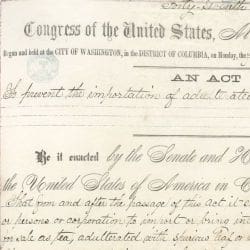 Forty-Seventh
Congress of the United States,
Begun and held at the CITY OF WASHINGTON, in the DISTRICT OF COLUMBIA, on Monday, the
AN ACT
To prevent the importation of adulterated
Be it enacted by the Senate and H
the United States of America in C
That from and after the passage of this Act it s
or persons or corporation to import or bring into
for sale as tea, adulterated with spurious leaf or